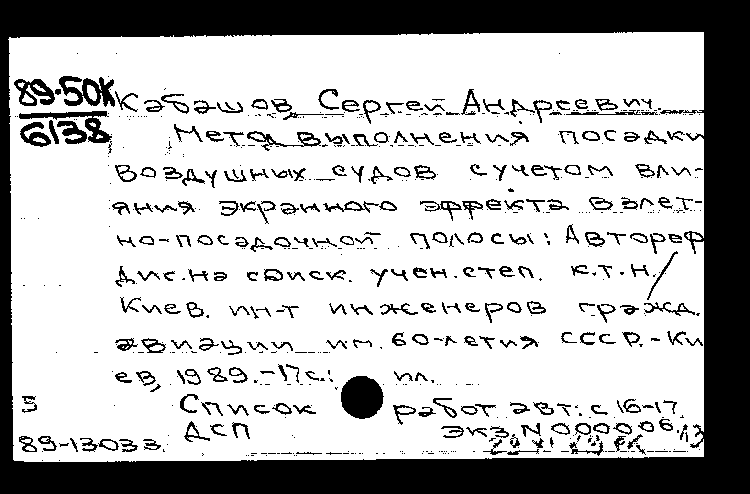 89-50К
6138
Кабашов, Сергей Андреевич.
Метод выполнения посадки
воздушных судов с учетом вли-
яния экранного эффекта взлет-
но-посадочной полосы: Автореф.
дис. на соиск. учен. степ. к.т.н. /
Киев. ин-т инженеров гражд.
авиации им. 60-летия СССР. - Ки-
ев, 1989. - 17 с.: ил.
5 Список работ авт.: с 16-17.
ДСП Экз. N 000006.
89-13033.